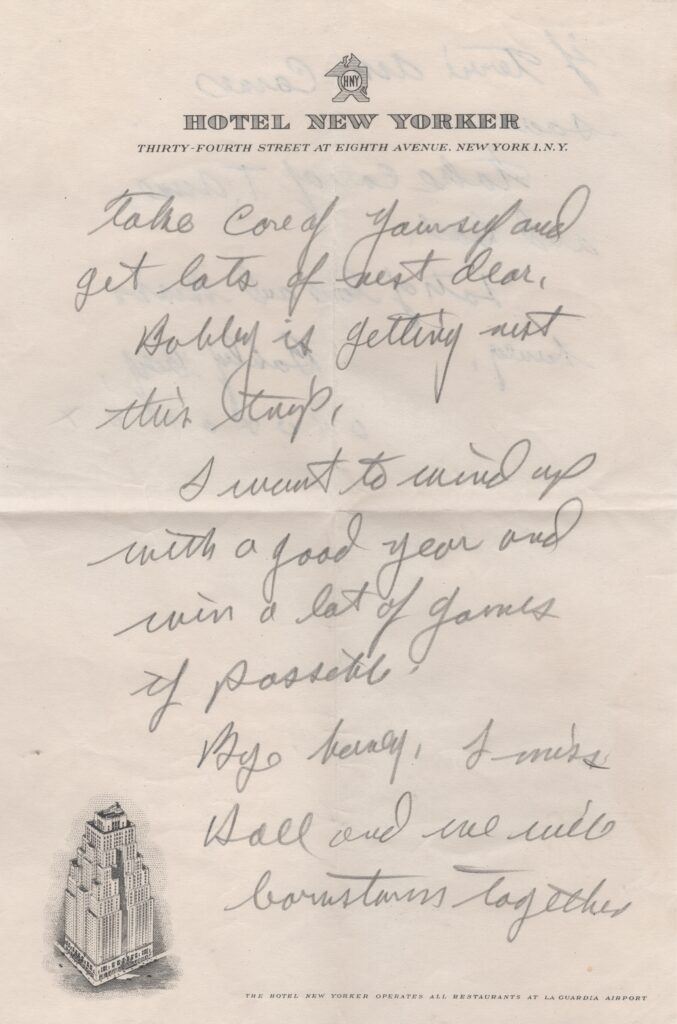 HNY
HOTEL NEW YORKER
THIRTY-FOURTH STREET AT EIGHTH AVENUE, NEW YORK 1, N.Y.
take care of yourself and
get lots of rest dear.
Bobby is getting rest
this trip.
I want to wind up
with a good year and
win a lot of games
if possible.
Bye honey, I miss
and we will
barnstorm together
THE HOTEL NEW YORKER OPERATES ALL RESTAURANTS AT LA GUARDIA AIRPORT